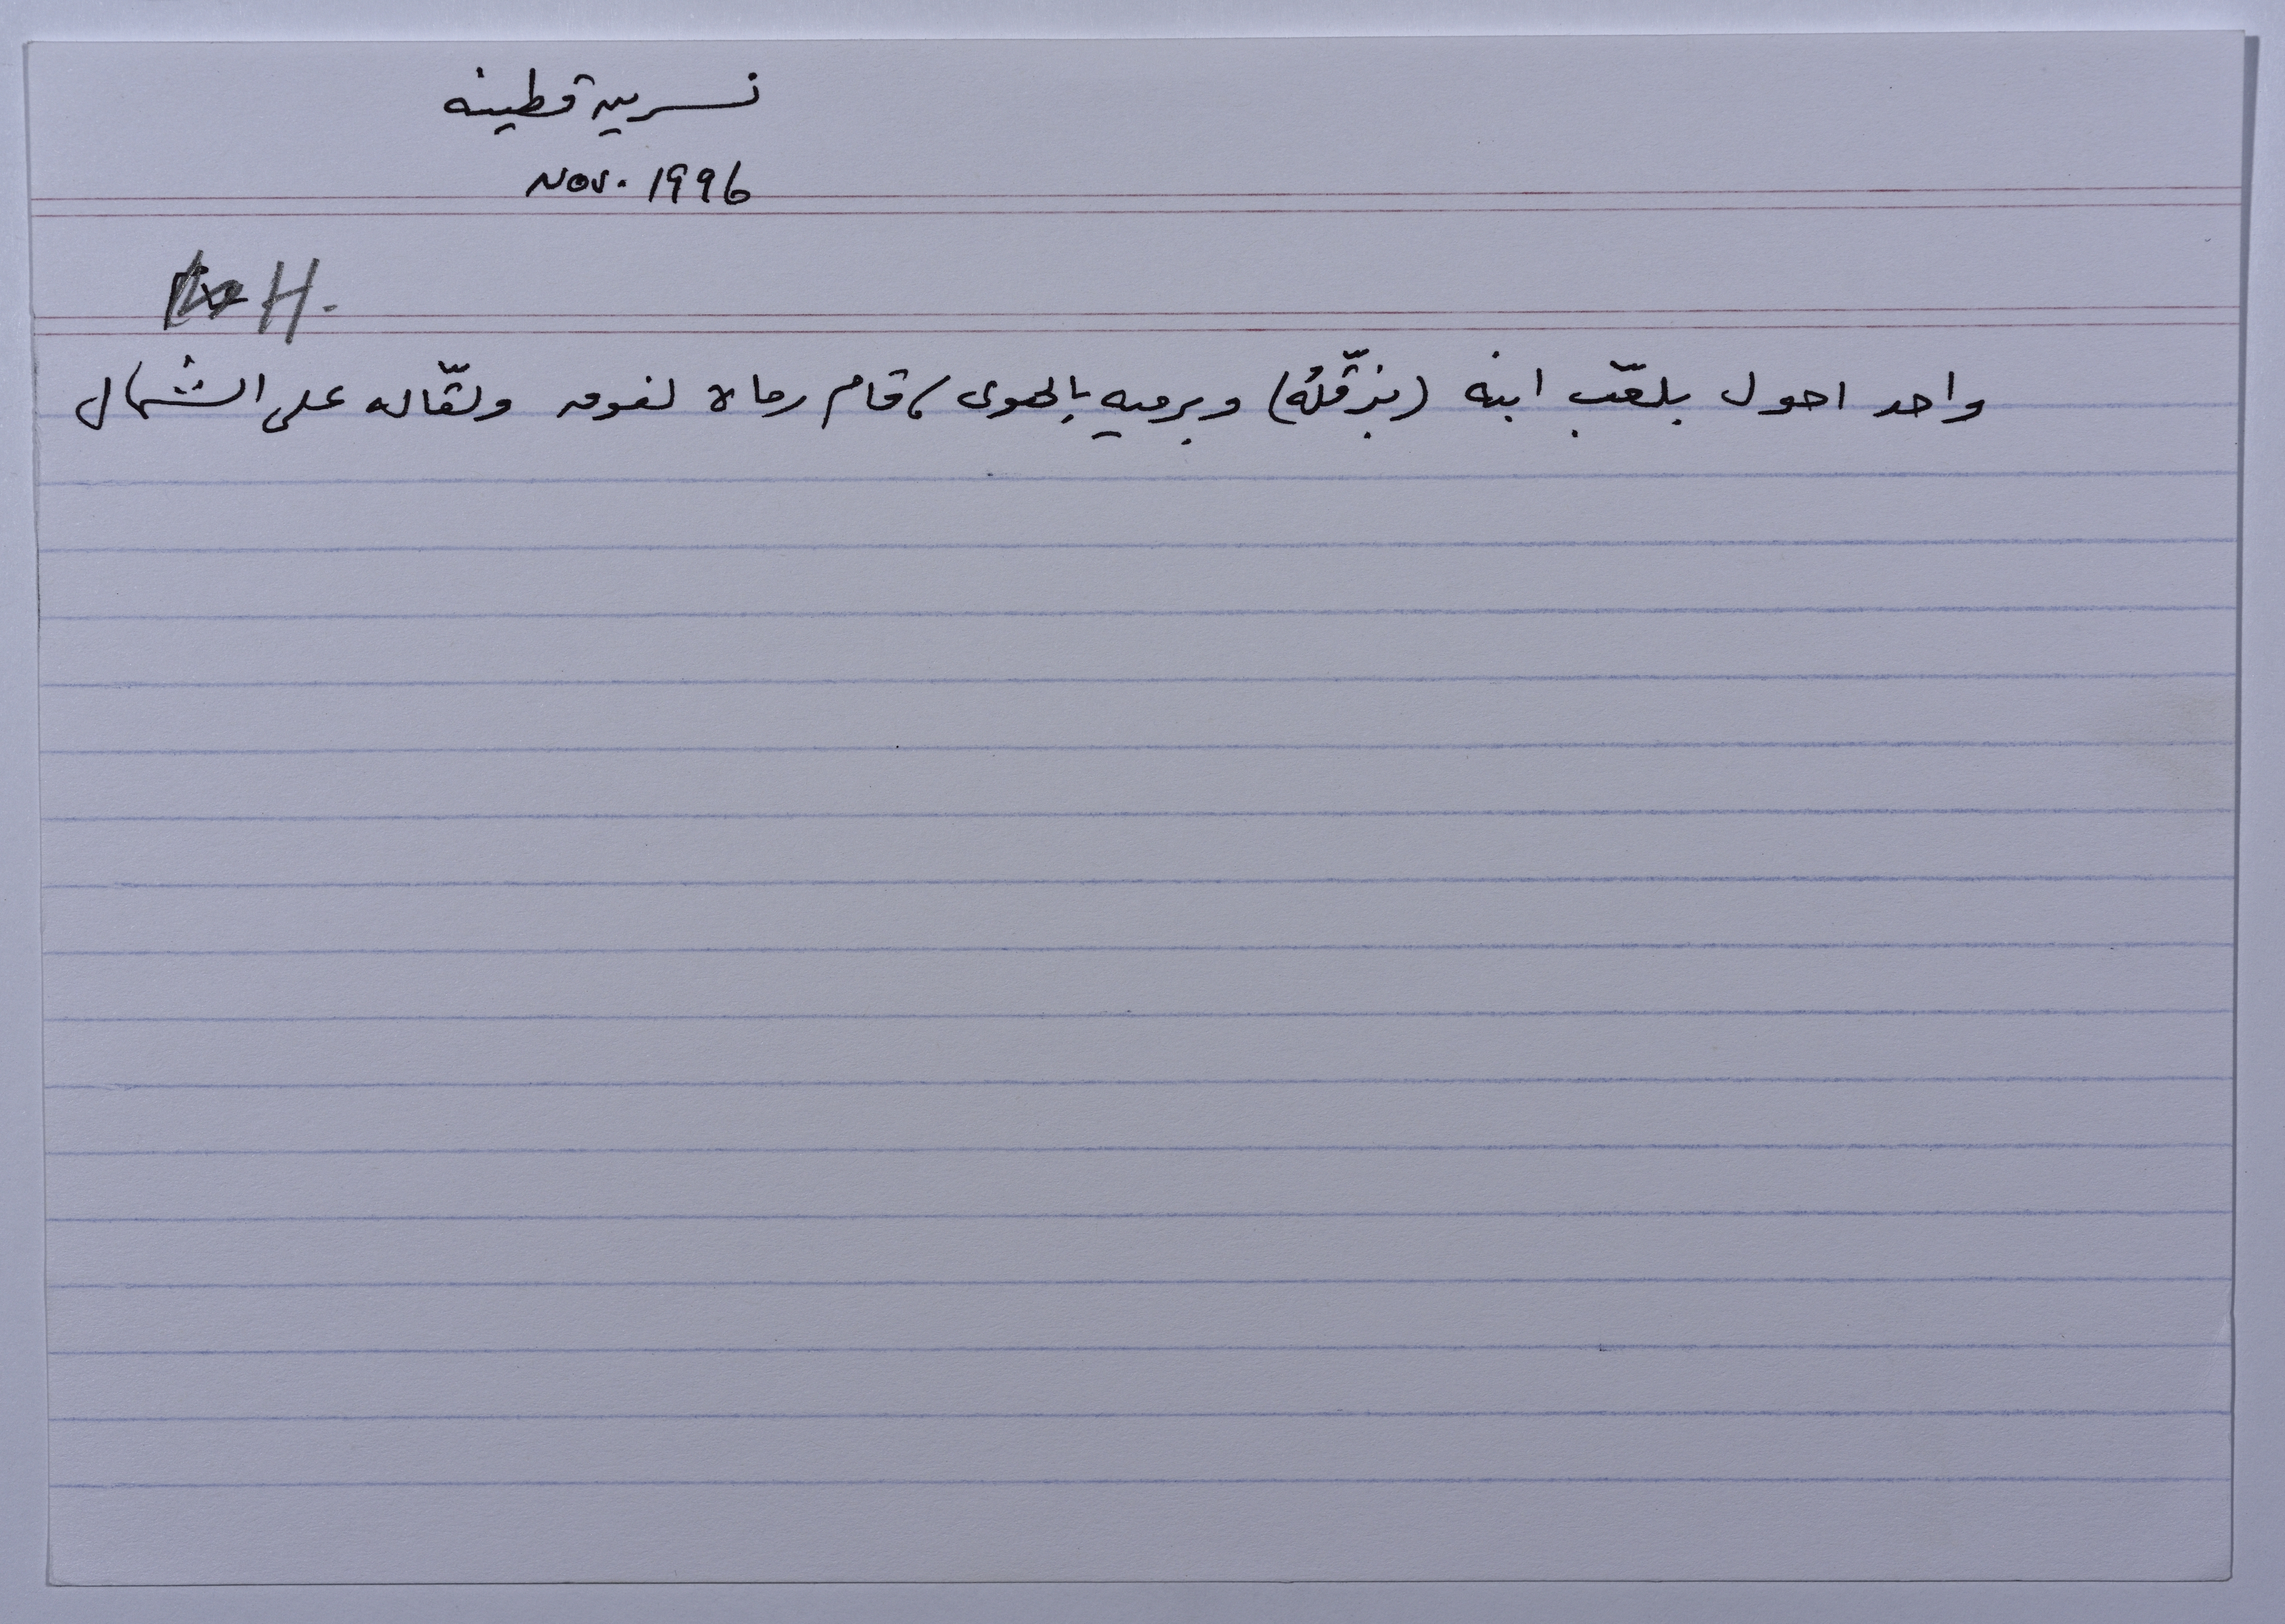 نسرين قطينه
Nov. 1996
H.
واحد احول بلعّب ابنه (بزقّلُه) وبرميه بالهوى، قام رماه لفوق ولقّاله على الشمال